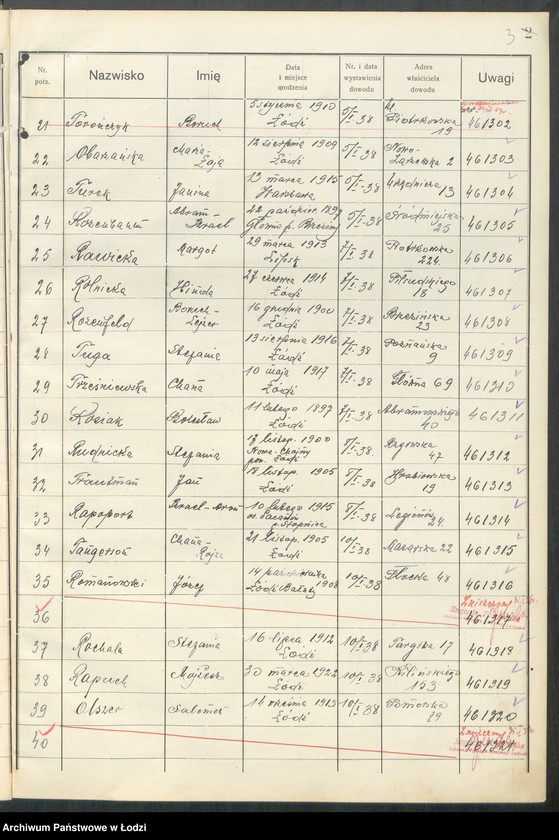 3
Nr. porz. Nazwisko Imię Data i miejsce urodzenia Nr. i data wystawienia dowodu Adres właściciela dowodu Uwagi
21 Torończyk 5 stycznia 1910 Łódź 5/I-38 ul. Piotrkowska 19 461302
22 Chana- 12 sierpnia 1909 Łódź 5/I-38 2 461303
23 Turek Janina 13 marca 1915 Warszawa 5/I-38 Urzędnicza 13 461304
24 Rozenbaum Abram- 1897 5/I-38 Śródmiejska 25 461305
25 Rawicka Margot 29 marca 1913 Lipsk 7/I-38 Piotrkowska 224 461306
26 Rolnicka Hinda 27 czerwca 1914 Łódź 7/I-38 Piłsudskiego 18 461307
27 Rozenfeld Boruch- Lejzer 16 grudnia 1900 Łódź 7/I-38 Brzezińska 23 461308
28 Tuga Stefania 13 sierpnia 1916 Łódź 7/I-38 Poznańska 9 461309
29 Trześniewska Chana 10 maja 1917 Łódź 7/I-38 Główna 69 461310
30 Bolesław 11 lutego 1897 Łódź 7/I-38 Abramowskiego 40 461311
31 Rudnicka Stefania listop. 1900 Nowe-Chojny pow. Łódź 8/I-38 Rzgowska 47 461312
32 Trautman Jan 18 listop. 1905 Łódź 8/I-38 19 461313
33 Rapoport 10 lutego 1915 8/I-38 Legionów 24 461314
34 Chana- Rojza 21 listop. 1905 Łódź 10/I-38 22 461315
35 Romanowski Józef 14 października 1908 Łódź Bałuty 10/I-38 Płocka 48 461316
36 Zniszczony 461317
37 Rochala Stefania 16 lipca 1912 Łódź 10/I-38 Targowa 17 461318
38 Rapuch Mojżesz 30 marca 1922 Łódź 10/I-38 Kilińskiego 153 461319
39 Olszer Salomon 14 1913 Łódź 10/I-38 Pomorska 79 461320
40 Zniszczony 461321
Archiwum Państwowe w Łodzi